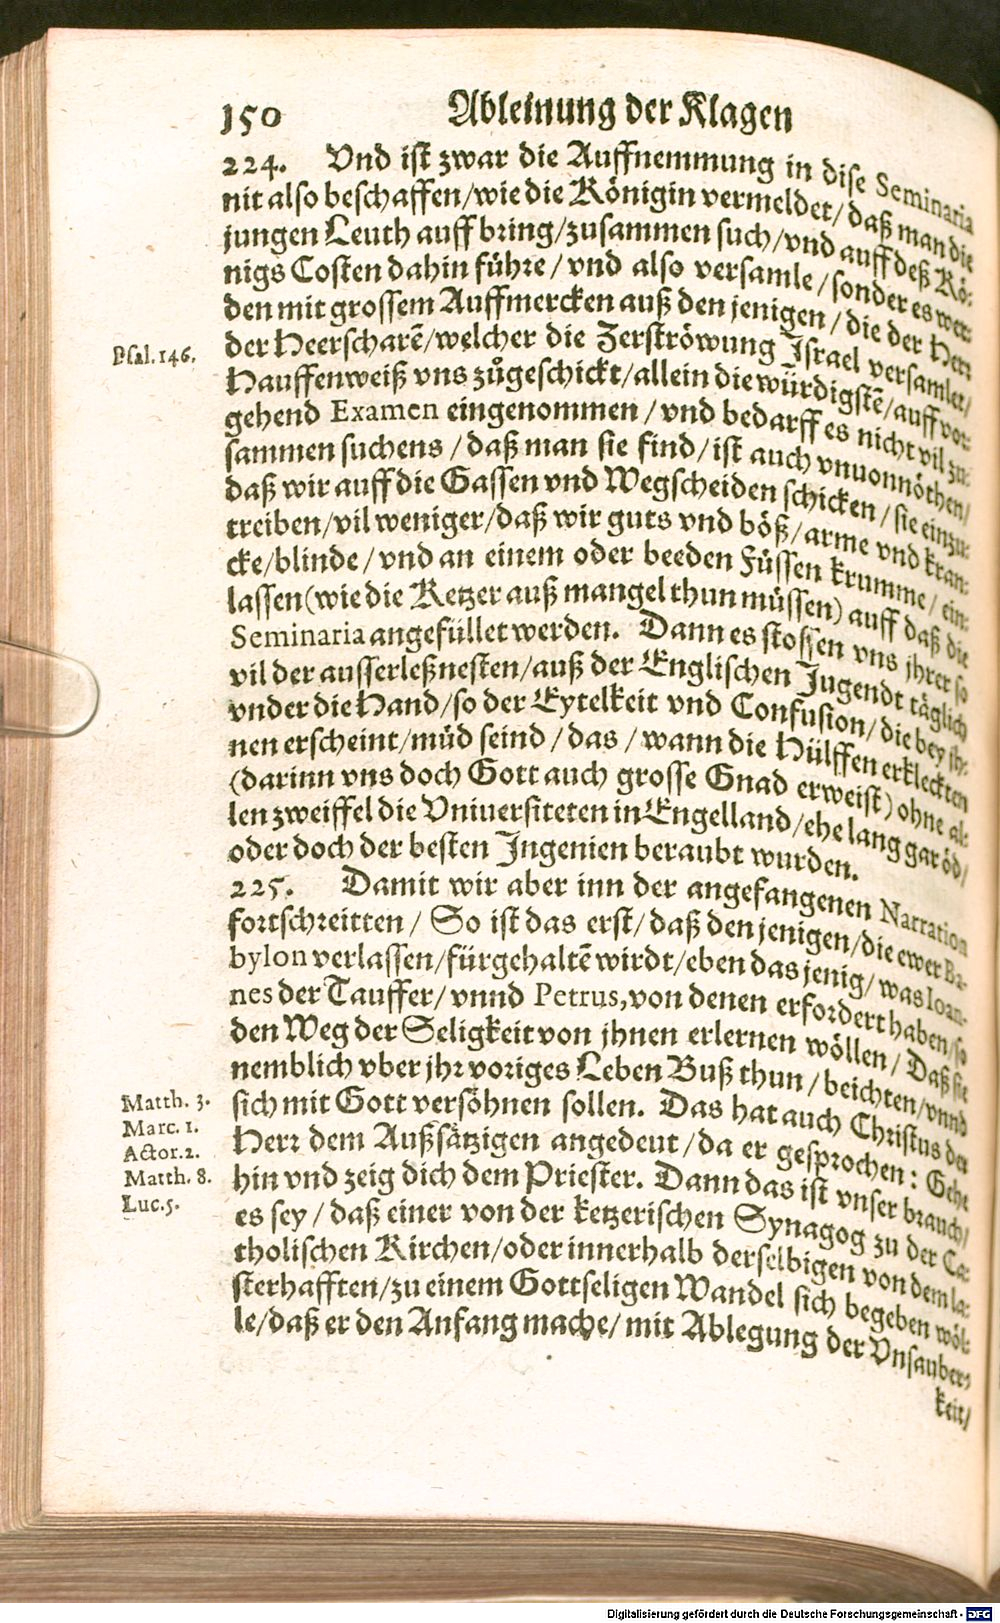 150 Ableinung der Klagen
224. Vnd ist zwar die Auffnemmung in dise Seminaria
nit also beschaffen/wie die Königin vermeldet/daß man die
jungen Leuth auff bring/zusammen such/vnd auff deß Kö-
nigs Costen dahin führe/vnd also versamle/sonder es wer-
den mit grossem Auffmercken auß den jenigen/die der Herr
Psal. 146. der Heerscharē/welcher die Zerströwung Israel versamlet/
Hauffenweiß vns zůgeschickt/allein die würdigstē/auff vor-
gehend Examen eingenommen/vnd bedarff es nicht vil zu-
sammen suchens/daß man sie find/ist auch vnuonnöthen/
daß wir auff die Gassen vnd Wegscheiden schicken/sie einzu-
treiben/vil weniger/daß wir guts vnd böß/arme vnd kran-
cke/blinde/vnd an einem oder beeden Füssen krumme/ein-
lassen (wie die Ketzer auß mangel thun müssen) auff daß die
Seminaria angefüllet werden. Dann es stossen vns jhrer so
vil der ausserleßnesten/auß der Englischen Jugendt täglich
vnder die Hand/so der Eytelkeit vnd Confusion/die bey jh-
nen erscheint/müd seind/das/wann die Hülffen erkleckten
(darinn vns doch Gott auch grosse Gnad erweist) ohne al-
len zweiffel die Vniuersiteten in Engelland/ehe lang gar öd/
oder doch der besten Ingenien beraubt wurden.
225. Damit wir aber inn der angefangenen Narration
fortschreitten/So ist das erst/daß den jenigen/die ewer Ba-
bylon verlassen/fürgehaltē wirdt/eben das jenig/was Ioan-
nes der Tauffer/vnnd Petrus, von denen erfordert haben/so
den Weg der Seligkeit von jhnen erlernen wöllen/Daß sie
nemblich vber jhr voriges Leben Buß thun/beichten/vnnd
Matth. 3. sich mit Gott versöhnen sollen. Das hat auch Christus der
Marc. 1. Herr dem Außsätzigen angedeut/da er gesprochen: Gehe
Actor. 2.
Matth. 8. hin vnd zeig dich dem Priester. Dann das ist vnser brauch/
Luc. 5. es sey/daß einer von der ketzerischen Synagog zu der Ca-
tholischen Kirchen/oder innerhalb derselbigen von dem la-
sterhafften/zu einem Gottseligen Wandel sich begeben wöl-
le/daß er den Anfang mache/mit Ablegung der Vnsauber-
keit/
Digitalisierung gefördert durch die Deutsche Forschungsgemeinschaft - DFG